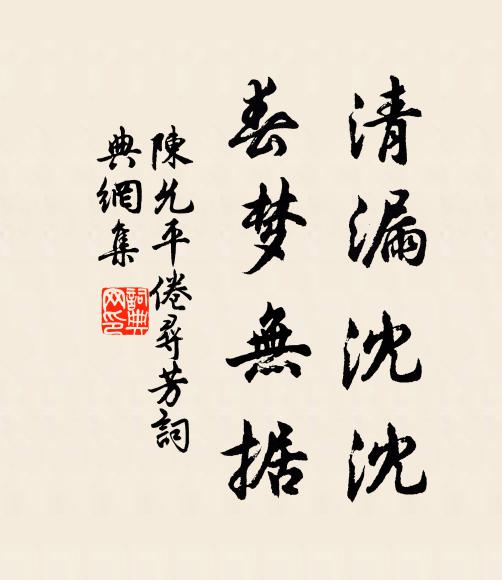 清漏沈沈
春梦無据
陳允平倦尋芳詞
典網集
詞典
网印